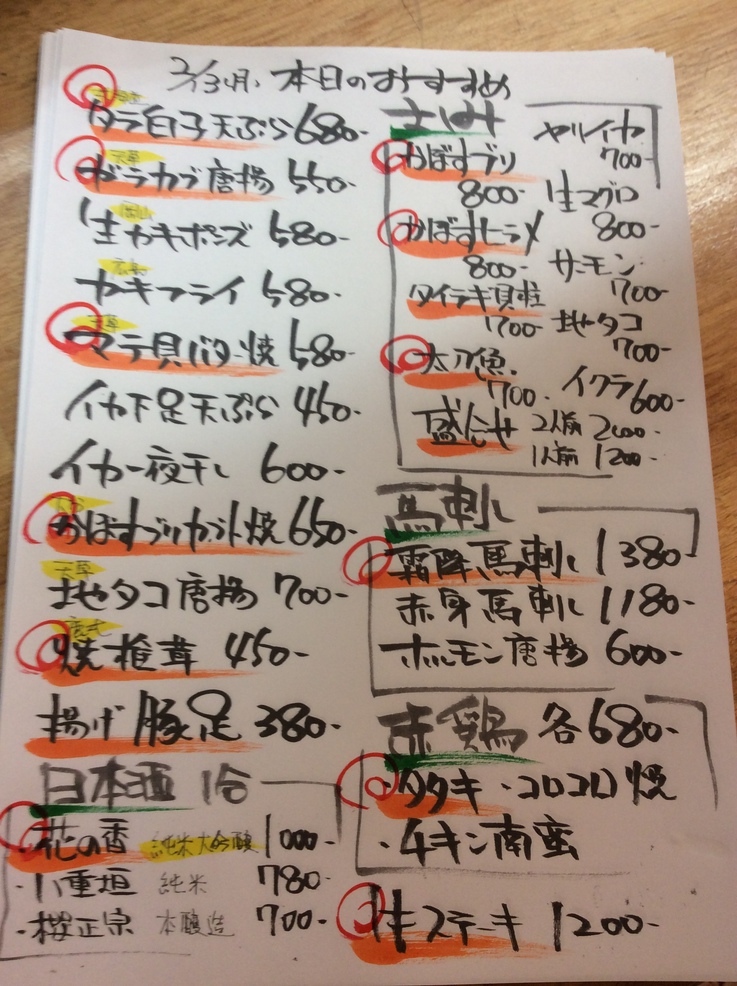 2/13(月) 本日のおすすめ
タラ白子天ぷら 680-
天草
ガラカブ唐揚 550-
岡山
生カキポン酢 580-
カキフライ 580-
天草
マテ貝バター焼 580-
イカ下足天ぷら 450-
イカ一夜干し 600-
かぼすブリカブト焼 650-
天草
地タコ唐揚 700-
焼椎茸 450-
揚げ豚足 380-
日本酒 1合
花の香 純米大吟醸 1000-
・八重垣 純米 780-
・桜正宗 本醸造 700-
さしみ
かぼすブリ
800-
かぼすヒラメ
800-
タイラギ貝柱
1700-
太刀魚
700-
盛合せ 2人前 2000-
1人前 1200-
ヤリイカ
700-
生マグロ
800-
サーモン
700-
地タコ
700-
イクラ 600-
馬刺し
霜降馬刺し 1380-
赤身馬刺し 1180-
ホルモン唐揚 600-
赤鶏 各680-
・タタキ ・コロコロ焼
・チキン南蛮
牛ステーキ 1200-